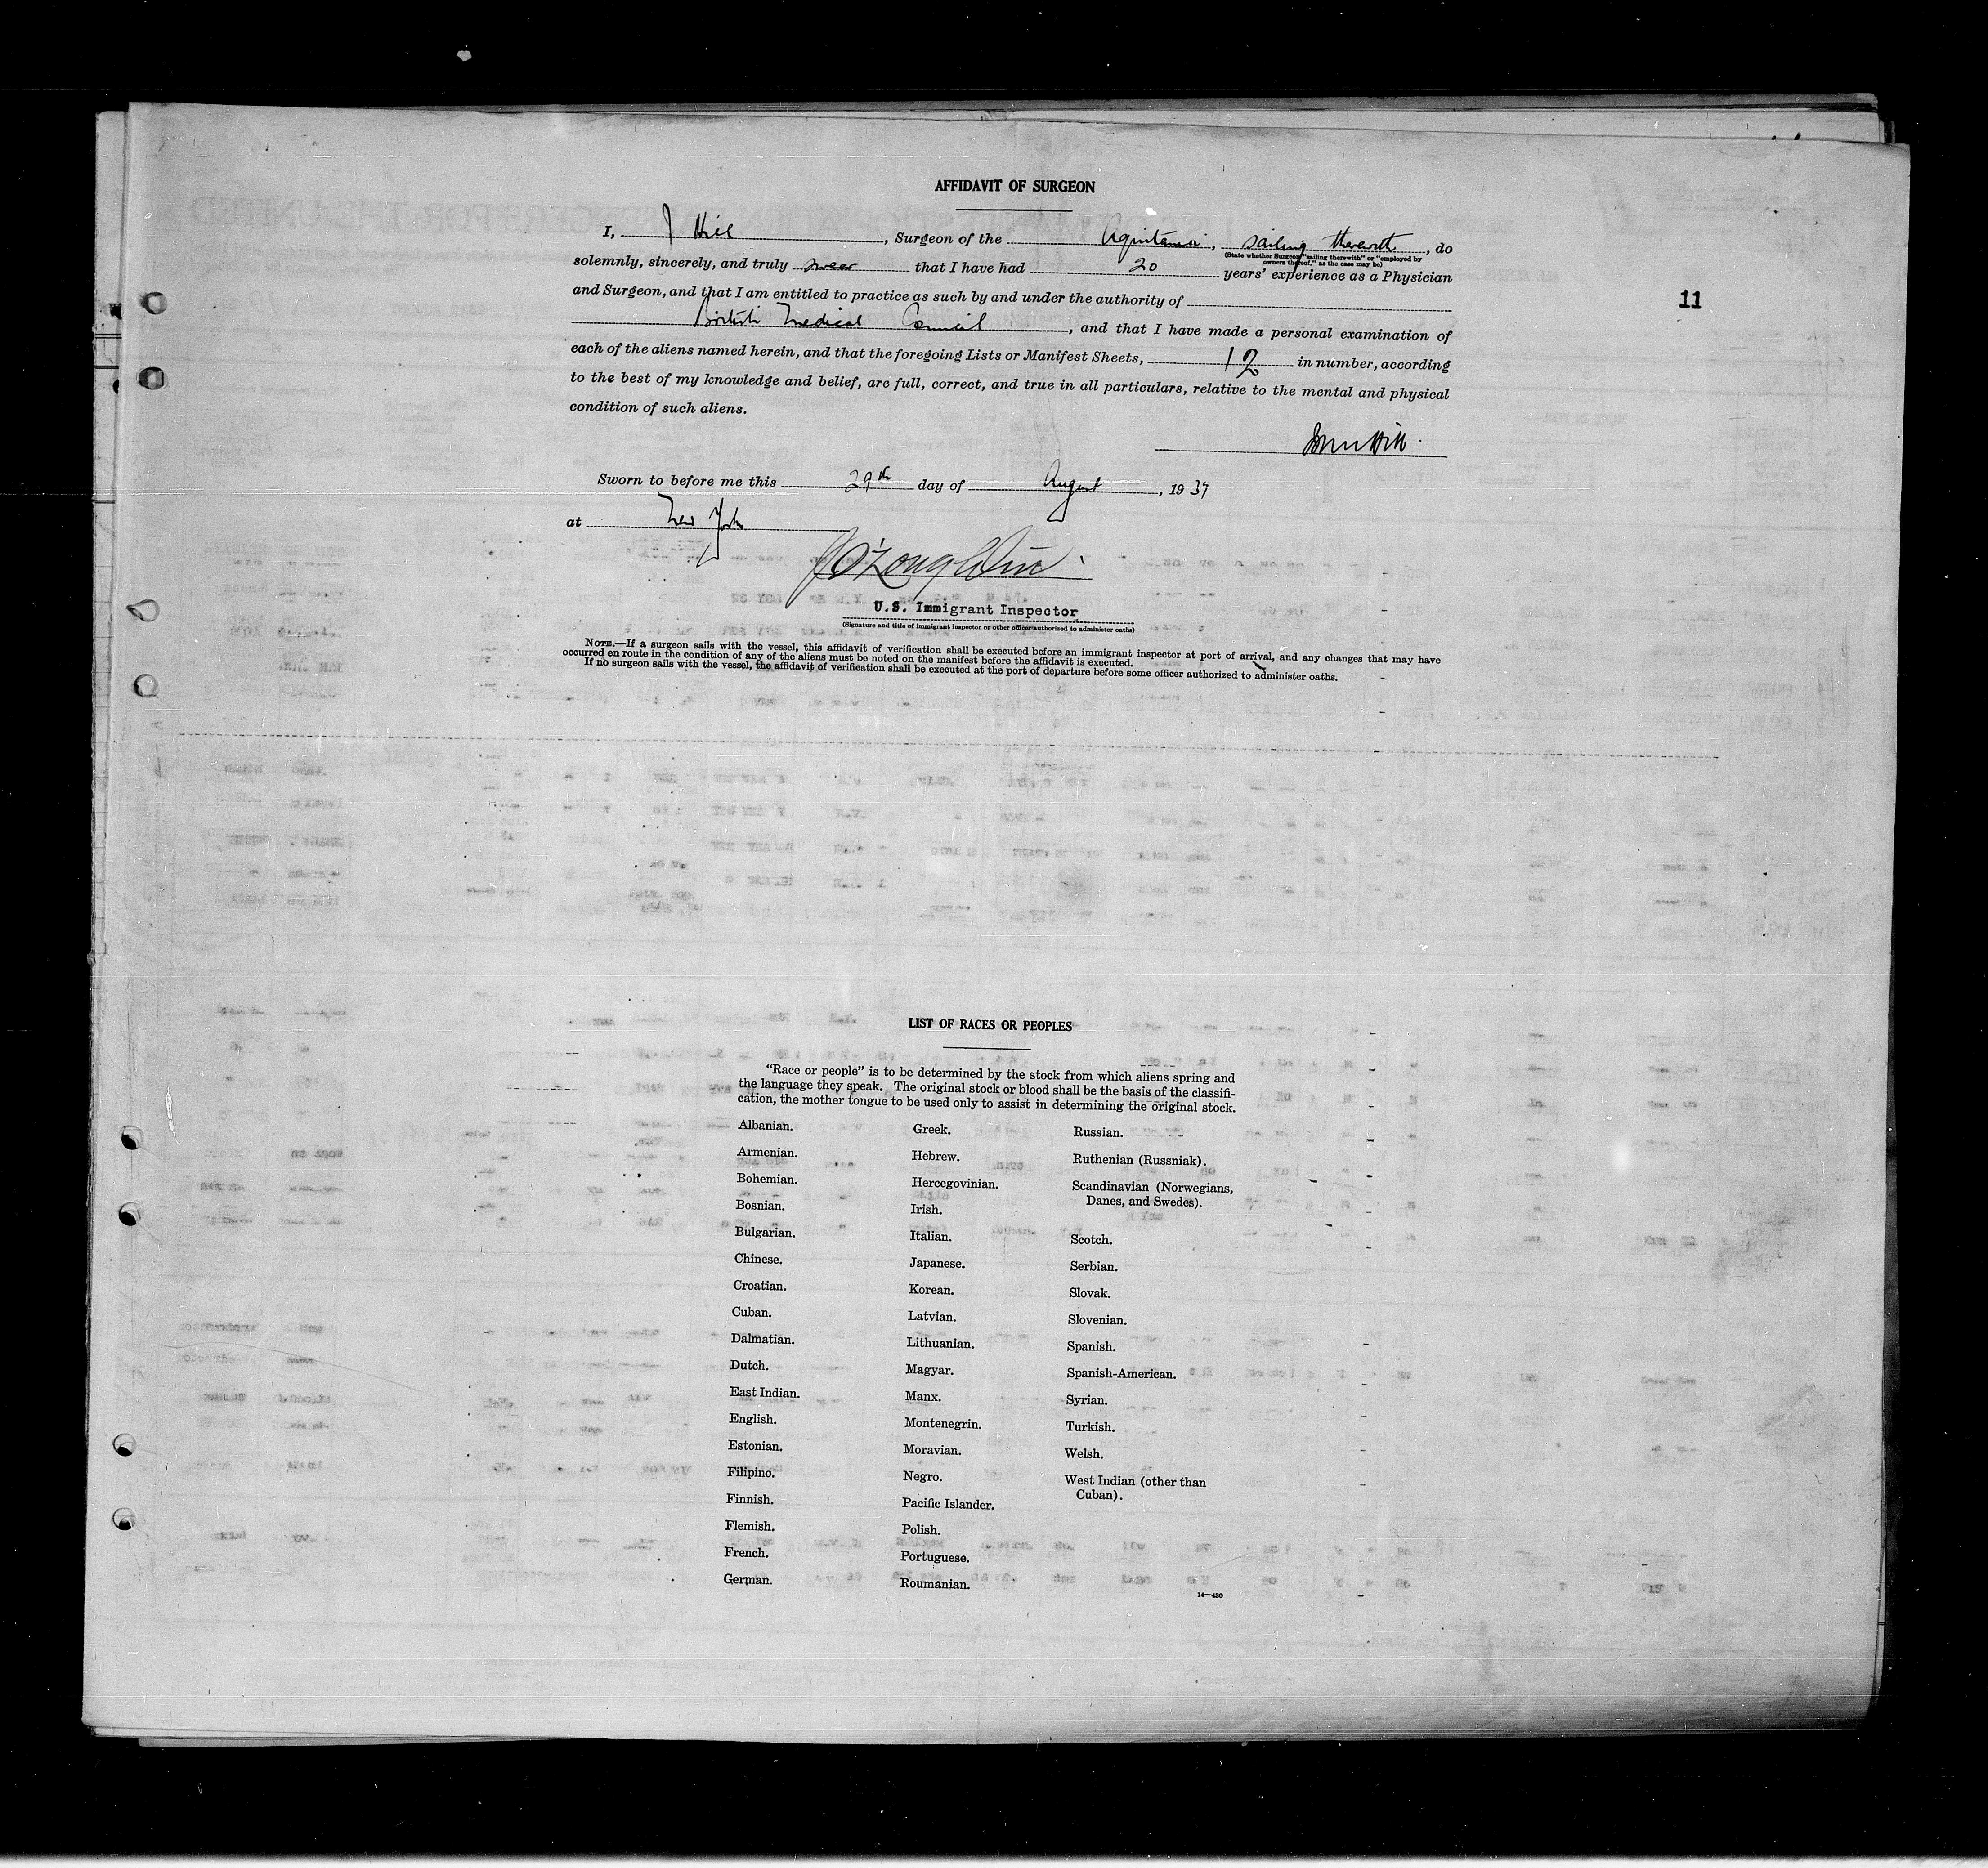 AFFIDAVIT OF SURGEON
I, J Hill, Surgeon of the Aquitania, sailing therewith, do
(State whether Surgeon "sailing therewith" or "employed by
owners thereof," as the case may be)
solemnly, sincerely, and truly swear that I have had 20 years' experience as a Physician
and Surgeon, and that I am entitled to practice as such by and under the authority of
British Medical Council, and that I have made a personal examination of
11
each of the aliens named herein, and that the foregoing Lists or Manifest Sheets, 12 in number, according
to the best of my knowledge and belief, are full, correct, and true in all particulars, relative to the mental and physical
condition of such aliens.
Hill.
Sworn to before me this 29th day of August, 1937
at New York
J O'Loughlin
U.S. Immigrant Inspector
(Signature and title of immigrant inspector or other officer authorized to administer oaths)
NOTE.—If a surgeon sails with the vessel, this affidavit of verification shall be executed before an immigrant inspector at port of arrival, and any changes that may have
occurred en route in the condition of any of the aliens must be noted on the manifest before the affidavit is executed.
If no surgeon sails with the vessel, the affidavit of verification shall be executed at the port of departure before some officer authorized to administer oaths.
LIST OF RACES OR PEOPLES
"Race or people" is to be determined by the stock from which aliens spring and
the language they speak. The original stock or blood shall be the basis of the classifi-
cation, the mother tongue to be used only to assist in determining the original stock.
Albanian.
Armenian.
Bohemian.
Bosnian.
Bulgarian.
Chinese.
Croatian.
Cuban.
Dalmatian.
Dutch.
East Indian.
English.
Estonian.
Filipino.
Finnish.
Flemish.
French.
German.
Greek.
Hebrew.
Hercegovinian.
Irish.
Italian.
Japanese.
Korean.
Latvian.
Lithuanian.
Magyar.
Manx.
Montenegrin.
Moravian.
Negro.
Pacific Islander.
Polish.
Portuguese.
Roumanian.
Russian.
Ruthenian (Russniak).
Scandinavian (Norwegians,
Danes, and Swedes).
Scotch.
Serbian.
Slovak.
Slovenian.
Spanish.
Spanish-American.
Syrian.
Turkish.
Welsh.
West Indian (other than
Cuban).
14—430